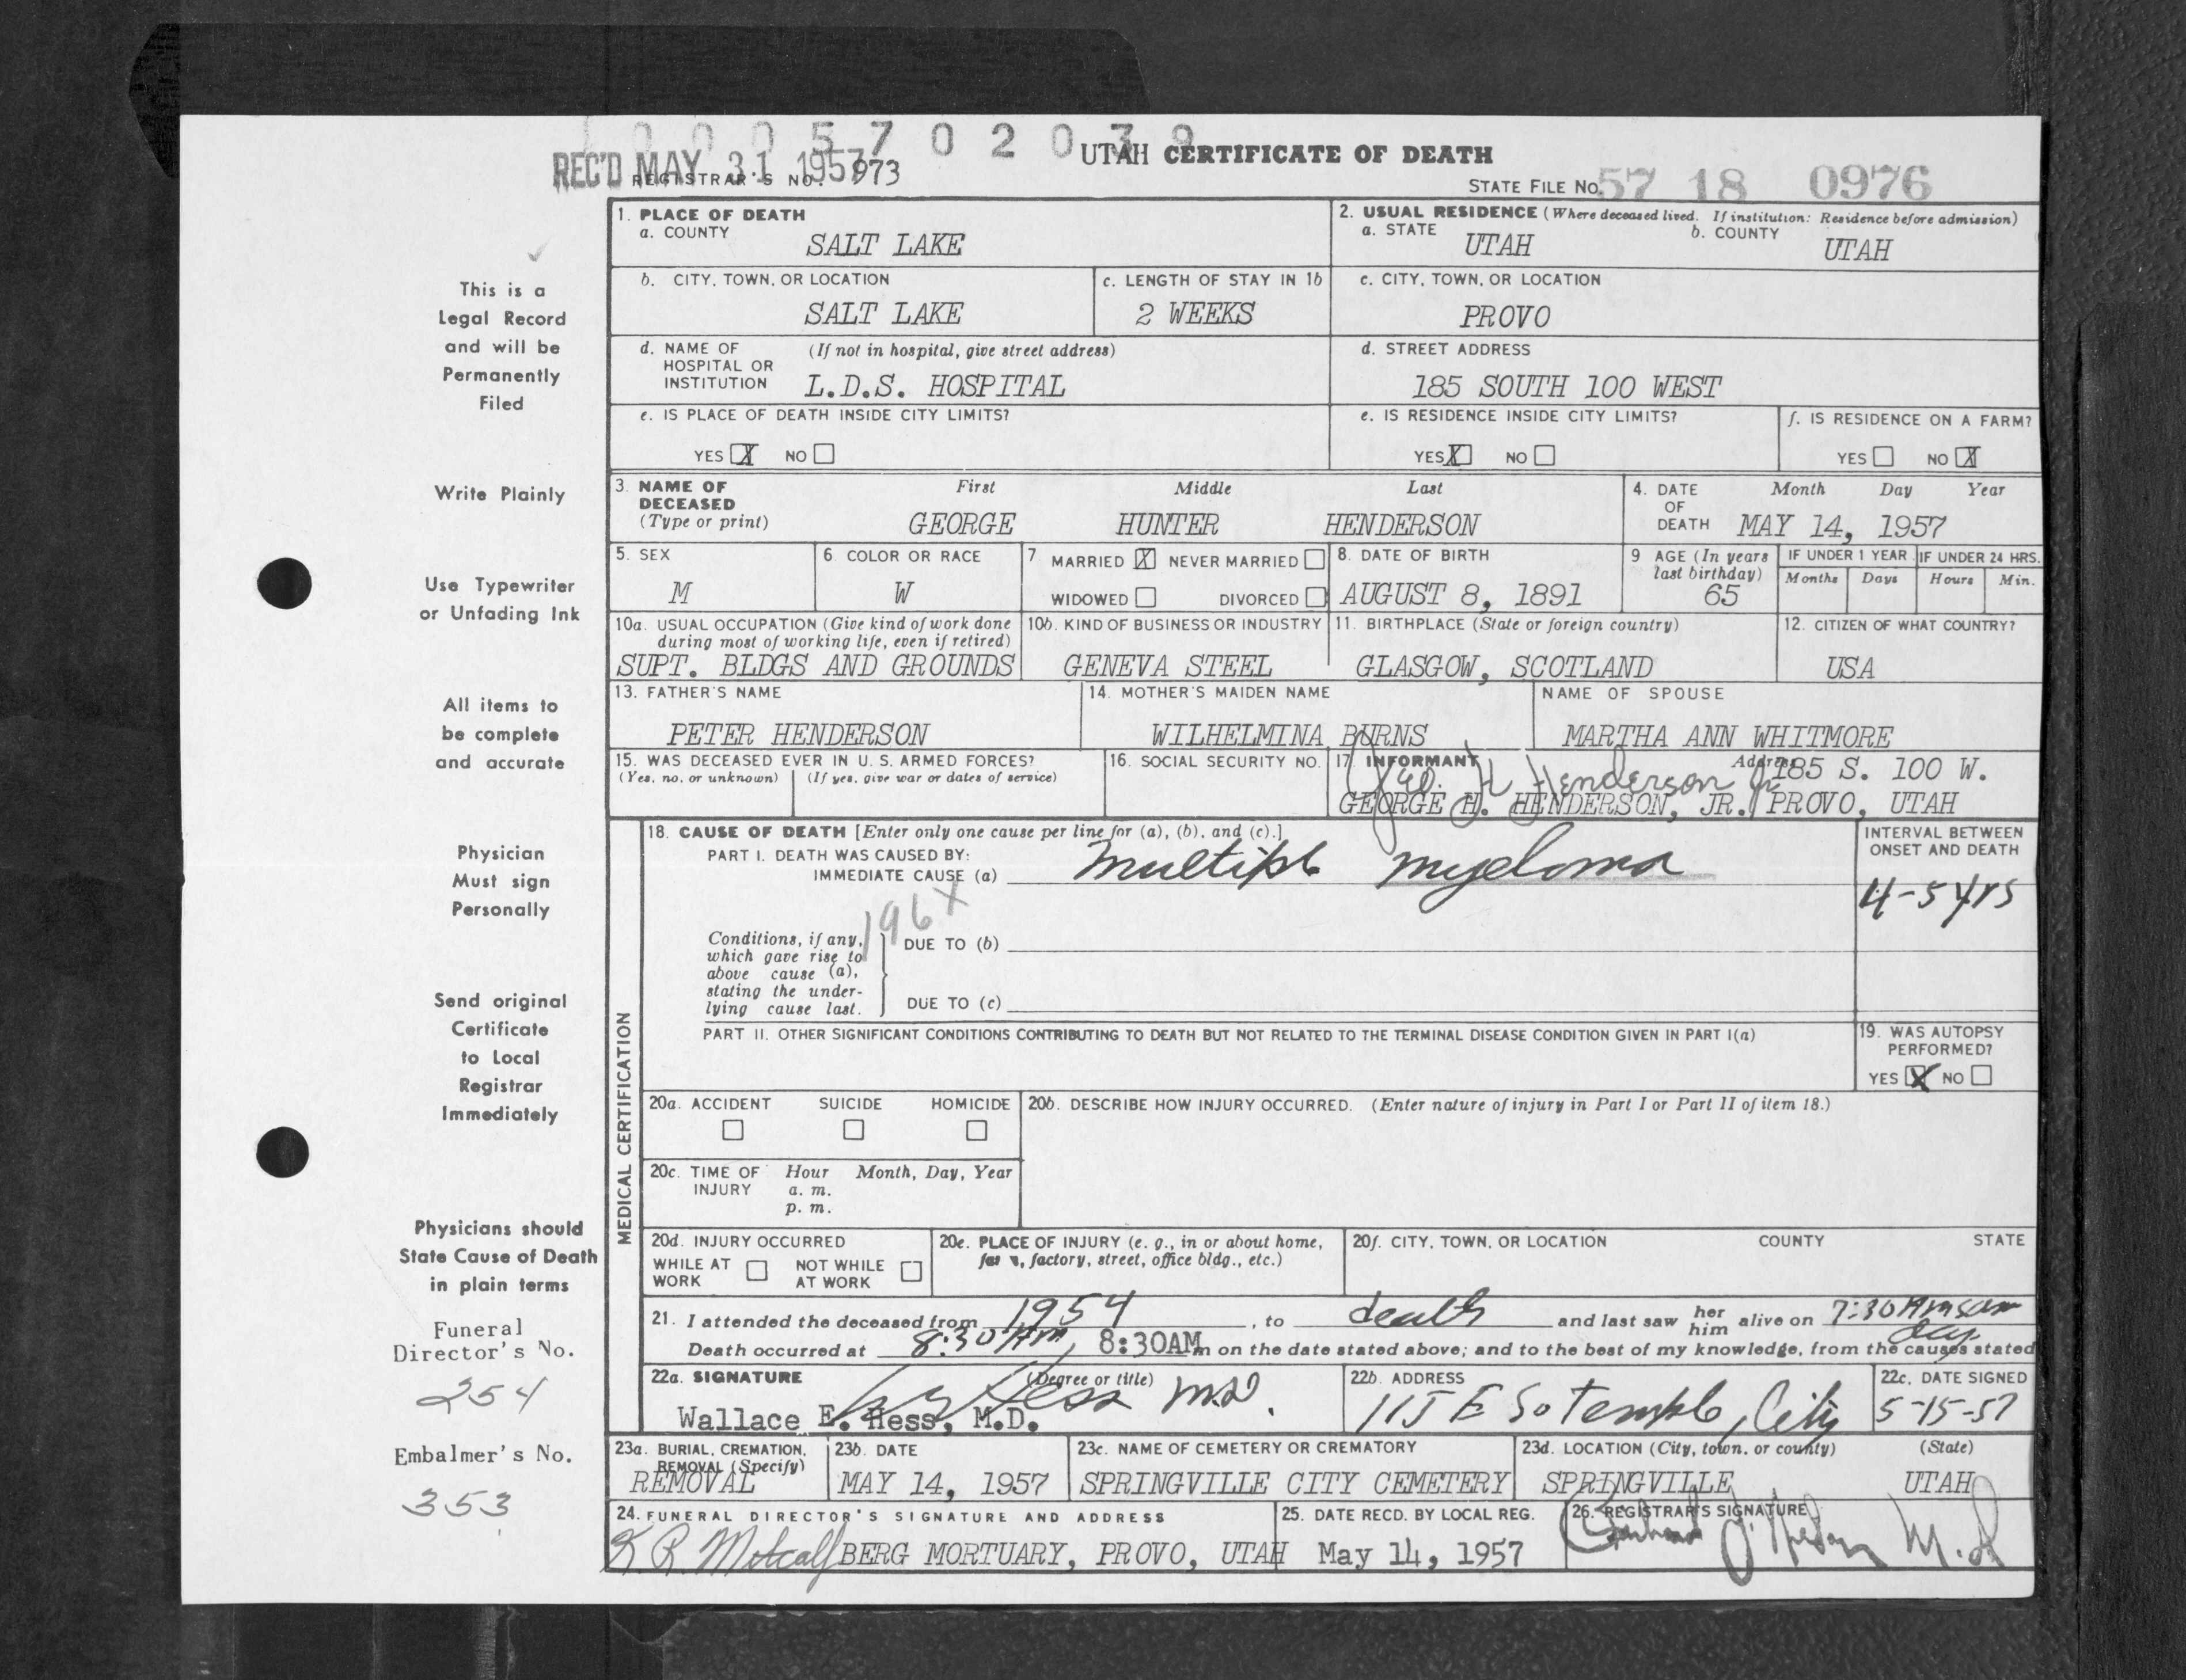 1 0 0 0 5 7 0 2 0 3 9
REC'D MAY 31 1957
UTAH CERTIFICATE OF DEATH
REGISTRAR'S NO. 973
STATE FILE NO. 57 18 0976
1. PLACE OF DEATH
a. COUNTY
SALT LAKE
2. USUAL RESIDENCE (Where deceased lived. If institution: Residence before admission)
a. STATE UTAH b. COUNTY UTAH
b. CITY, TOWN, OR LOCATION
SALT LAKE
c. LENGTH OF STAY IN 1b
2 WEEKS
c. CITY, TOWN, OR LOCATION
PROVO
d. NAME OF HOSPITAL OR INSTITUTION (If not in hospital, give street address)
L.D.S. HOSPITAL
d. STREET ADDRESS
185 SOUTH 100 WEST
e. IS PLACE OF DEATH INSIDE CITY LIMITS?
YES X NO
e. IS RESIDENCE INSIDE CITY LIMITS?
YES X NO
f. IS RESIDENCE ON A FARM?
YES NO X
3. NAME OF DECEASED (Type or print)
First Middle Last
GEORGE HUNTER HENDERSON
4. DATE OF DEATH Month Day Year
MAY 14, 1957
5. SEX
M
6. COLOR OR RACE
W
7 MARRIED X NEVER MARRIED
WIDOWED DIVORCED
8. DATE OF BIRTH
AUGUST 8, 1891
9 AGE (In years last birthday)
65
IF UNDER 1 YEAR
Months Days
IF UNDER 24 HRS.
Hours Min.
10a. USUAL OCCUPATION (Give kind of work done during most of working life, even if retired)
SUPT. BLDGS AND GROUNDS
10b. KIND OF BUSINESS OR INDUSTRY
GENEVA STEEL
11. BIRTHPLACE (State or foreign country)
GLASGOW, SCOTLAND
12. CITIZEN OF WHAT COUNTRY?
USA
13. FATHER'S NAME
PETER HENDERSON
14. MOTHER'S MAIDEN NAME
WILHELMINA BURNS
NAME OF SPOUSE
MARTHA ANN WHITMORE
15. WAS DECEASED EVER IN U. S. ARMED FORCES?
(Yes, no, or unknown) (If yes, give war or dates of service)
16. SOCIAL SECURITY NO.
17. INFORMANT Address
Geo. H Henderson Jr
185 S. 100 W.
GEORGE H. HENDERSON, JR. PROVO, UTAH
MEDICAL CERTIFICATION
18. CAUSE OF DEATH [Enter only one cause per line for (a), (b), and (c).]
PART I. DEATH WAS CAUSED BY:
IMMEDIATE CAUSE (a) Multiple myeloma
INTERVAL BETWEEN ONSET AND DEATH
4-5 yrs
196X
Conditions, if any,
which gave rise to
above cause (a),
stating the under-
lying cause last.
DUE TO (b)
DUE TO (c)
PART II. OTHER SIGNIFICANT CONDITIONS CONTRIBUTING TO DEATH BUT NOT RELATED TO THE TERMINAL DISEASE CONDITION GIVEN IN PART I(a)
19. WAS AUTOPSY PERFORMED?
YES X NO
20a. ACCIDENT SUICIDE HOMICIDE
20b. DESCRIBE HOW INJURY OCCURRED. (Enter nature of injury in Part I or Part II of item 18.)
20c. TIME OF INJURY Hour Month, Day, Year
a. m.
p. m.
20d. INJURY OCCURRED
WHILE AT WORK NOT WHILE AT WORK
20e. PLACE OF INJURY (e. g., in or about home, factory, street, office bldg., etc.)
20f. CITY, TOWN, OR LOCATION COUNTY STATE
21. I attended the deceased from 1954, to death and last saw her him alive on 7:30 Am same day
Death occurred at 8:30 AM, 8:30AM m on the date stated above; and to the best of my knowledge, from the causes stated
22a. SIGNATURE (Degree or title)
W E Hess M.D.
Wallace E. Hess, M.D.
22b. ADDRESS
115 E So Temple, City
22c. DATE SIGNED
5-15-57
23a. BURIAL, CREMATION, REMOVAL (Specify)
REMOVAL
23b. DATE
MAY 14, 1957
23c. NAME OF CEMETERY OR CREMATORY
SPRINGVILLE CITY CEMETERY
23d. LOCATION (City, town, or county) (State)
SPRINGVILLE UTAH
24. FUNERAL DIRECTOR'S SIGNATURE AND ADDRESS
K R Metcalf BERG MORTUARY, PROVO, UTAH
25. DATE RECD. BY LOCAL REG.
May 14, 1957
26. REGISTRAR'S SIGNATURE
M.D
This is a
Legal Record
and will be
Permanently
Filed
Write Plainly
Use Typewriter
or Unfading Ink
All items to
be complete
and accurate
Physician
Must sign
Personally
Send original
Certificate
to Local
Registrar
Immediately
Physicians should
State Cause of Death
in plain terms
Funeral
Director's No.
254
Embalmer's No.
353